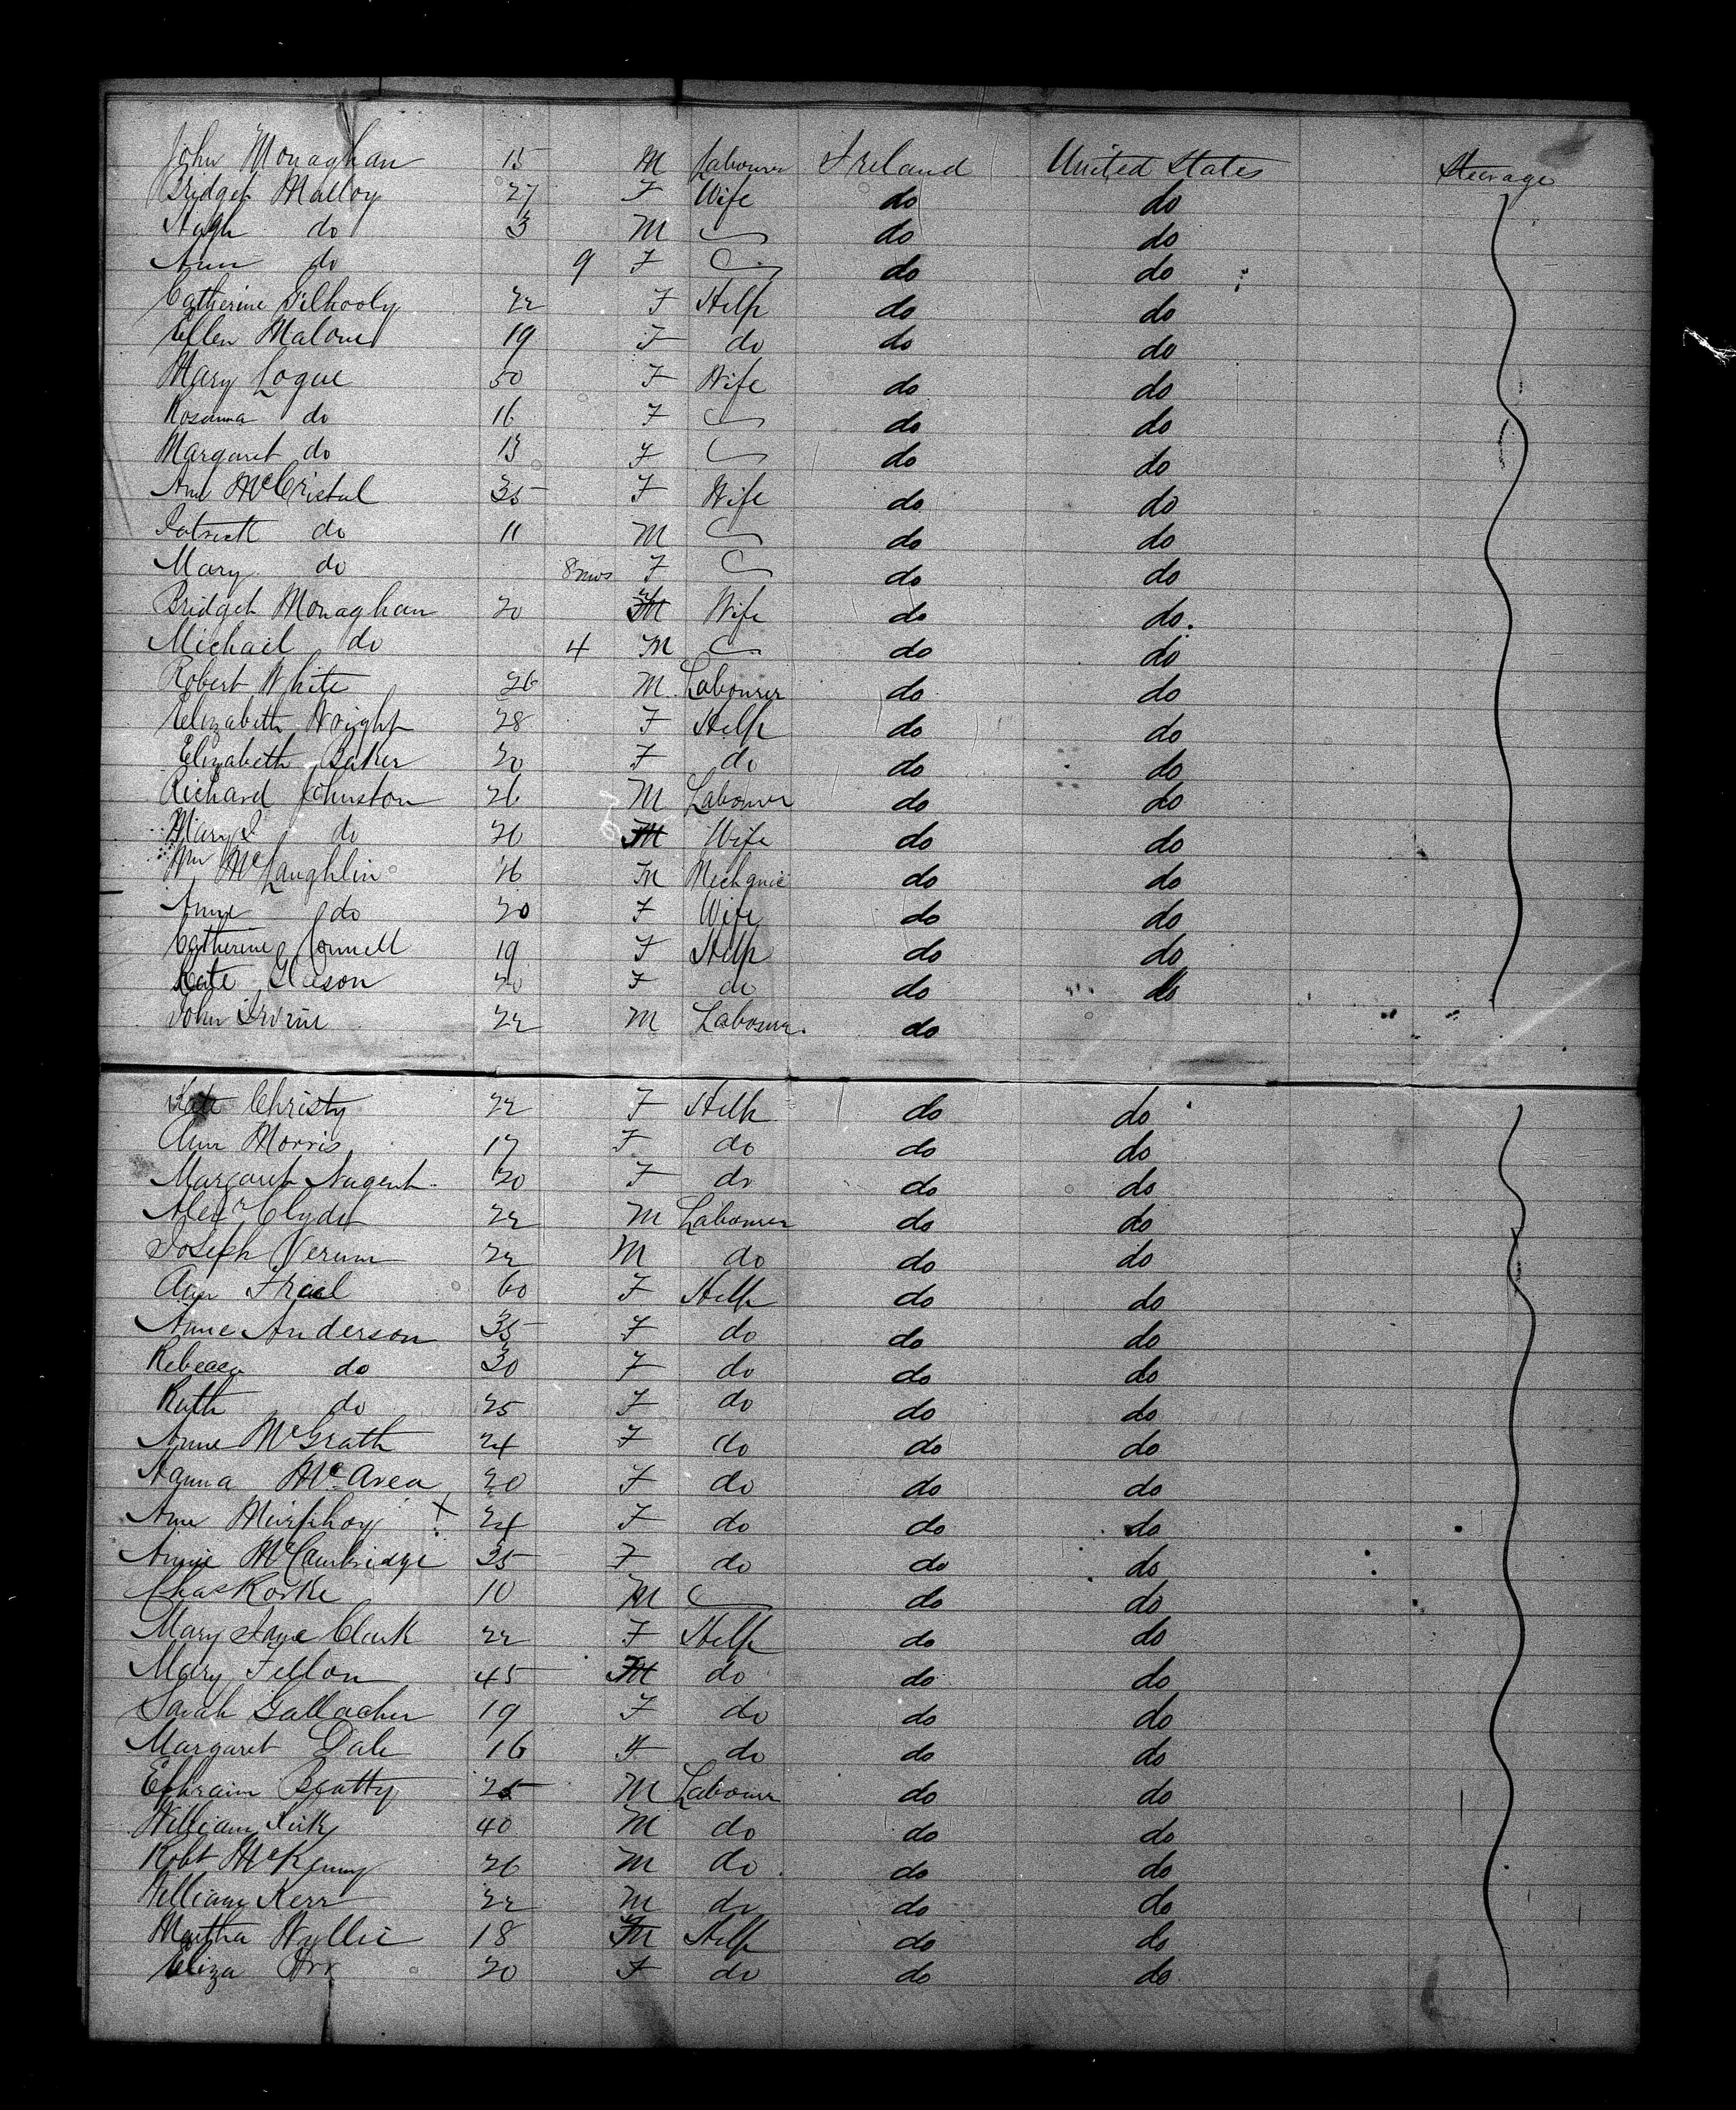 John Monaghan 15 M Labourer Ireland United States Steerage
Bridget Malloy 27 F Wife do do
Hugh do 3 M do do
Ann do 9 F do do
Catherine Gilhooly 22 F Help do do
Ellen Malone 19 F do do do
Mary Logue 50 F Wife do do
Rosanna do 16 F do do
Margaret do 13 F do do
Ann McCristal 35 F Wife do do
Patrick do 11 M do do
Mary do 8 mos F do do
Bridget Monaghan 20 F Wife do do.
Michael do 4 M do do
Robert White 26 M Labourer do do
Elizabeth Wright 28 F Help do do
Elizabeth Baker 20 F do do do
Richard Johnston 26 M Labourer do do
Mary do 20 F Wife do do
Wm McLaughlin M Mechanic do do
Anne do 20 F Wife do do
Catherine Connell 19 F Help do do
Kate Gleeson 20 F do do do
John Irvine 22 M Labourer do
Kate Christy 22 F Help do do
Ann Morris 17 F do do do
Margaret Nugent 20 F do do do
Alexr Clyde 22 M Labourer do do
Joseph 22 M do do do
Ann 60 F Help do do
Anne Anderson 35 F do do do
Rebecca do 30 F do do do
Ruth do 25 F do do do
Anne McGrath 24 F do do do
Hanna McAvea 20 F do do do
Ann Murphy X 24 F do do do
Annie McCambridge 35 F do do do
Chas Rorke 10 M do do
Mary Jane Clark 22 F Help do do
Mary Fellon 45 F do do do
Sarah Gallacher 19 F do do do
Margaret Dale 16 F do do do
Ephraim Beatty 25 M Labourer do do
William Kirk 40 M do do do
Robt McKenny 26 M do do do
William Kerr 22 M do do do
Martha Wyllie 18 F Help do do
Eliza Orr 20 F do do do